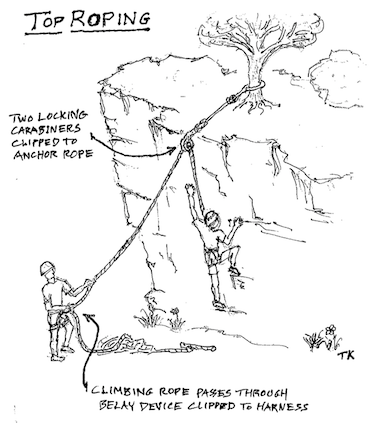 TOP ROPING
TWO LOCKING
CARABINERS
CLIPPED TO
ANCHOR ROPE
TK
CLIMBING ROPE PASSES THROUGH
BELAY DEVICE CLIPPED TO HARNESS